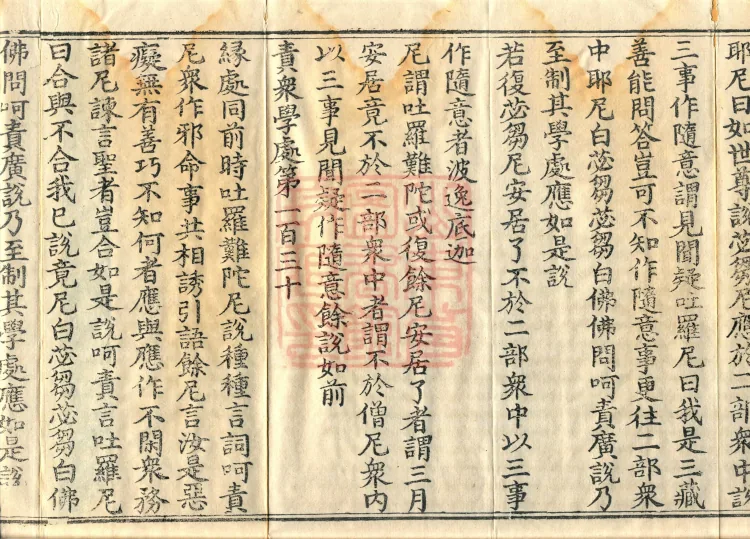 耶尼曰如世尊說苾芻尼應於二部衆中說
三事作隨意謂見聞疑吐羅尼曰我是三藏
善能問答豈可不知作隨意事更往二部衆
中耶尼白苾芻苾芻白佛佛問呵責廣說乃
至制其學處應如是說
若復苾芻尼安居了不於二部衆中以三事
作隨意者波逸底迦
尼謂吐羅難陀或復餘尼安居了者謂三月
安居竟不於二部衆中者謂不於僧尼衆內
以三事見聞疑作隨意餘說如前
責衆學處第一百三十
緣處同前時吐羅難陀尼說種種言詞呵責
尼衆作邪命事共相誘引語餘尼言汝是惡
癡無有善巧不知何者應與應作不閑衆務
諸尼諫言聖者豈合如是說呵責言吐羅尼
曰合與不合我已說竟尼白苾芻苾芻白佛
佛問呵責廣說乃至制其學處應如是說